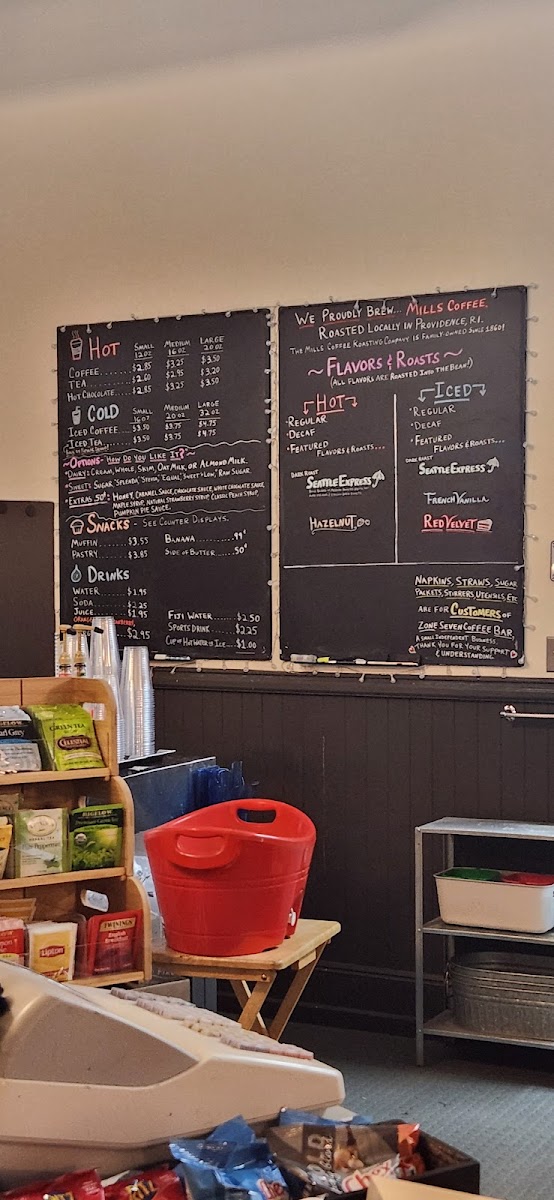 HOT
SMALL 12 OZ MEDIUM 16 OZ LARGE 20 OZ
COFFEE $2.85 $3.25 $3.50
TEA $2.60 $2.95 $3.20
HOT CHOCOLATE $2.85 $3.25 $3.50
COLD
SMALL 16 OZ MEDIUM 20 OZ LARGE 32 OZ
ICED COFFEE $3.50 $3.75 $4.75
ICED TEA $3.50 $3.75 $4.75
~OPTIONS~ HOW DO YOU LIKE IT?~
DAIRY: CREAM, WHOLE, SKIM, OAT MILK, OR ALMOND MILK.
SWEET: SUGAR, SPLENDA, STEVIA, EQUAL, SWEET N LOW, RAW SUGAR
EXTRAS 50¢: HONEY, CARAMEL SAUCE, CHOCOLATE SAUCE, WHITE CHOCOLATE SAUCE,
MAPLE SYRUP, NATURAL STRAWBERRY SYRUP, CLASSIC PEACH SYRUP,
PUMPKIN PIE SAUCE.
SNACKS - SEE COUNTER DISPLAYS.
MUFFIN $3.55 BANANA .99¢
PASTRY $3.85 SIDE OF BUTTER .50¢
DRINKS
WATER $1.95
SODA $2.25 FIJI WATER $2.50
JUICE $1.95 SPORTS DRINK $2.25
$2.95 CUP OF HOT WATER OR ICE $1.00
WE PROUDLY BREW... MILLS COFFEE.
ROASTED LOCALLY IN PROVIDENCE, R.I.
THE MILLS COFFEE ROASTING COMPANY IS FAMILY-OWNED SINCE 1860!
~ FLAVORS & ROASTS ~
(ALL FLAVORS ARE ROASTED INTO THE BEAN!)
HOT
• REGULAR
• DECAF
• FEATURED
FLAVORS & ROASTS...
DARK ROAST
SEATTLE EXPRESS
HAZELNUT
ICED
• REGULAR
• DECAF
• FEATURED
FLAVORS & ROASTS...
DARK ROAST
SEATTLE EXPRESS
FRENCH VANILLA
RED VELVET
NAPKINS, STRAWS, SUGAR
PACKETS, STIRRERS, UTENSILS, ETC
ARE FOR CUSTOMERS OF
ZONE SEVEN COFFEE BAR,
A SMALL INDEPENDENT BUSINESS.
THANK YOU FOR YOUR SUPPORT
& UNDERSTANDING.
Earl Grey
GREEN TEA
CELESTIAL
Peppermint
BIGELOW
Lipton
TWININGS
English Breakfast